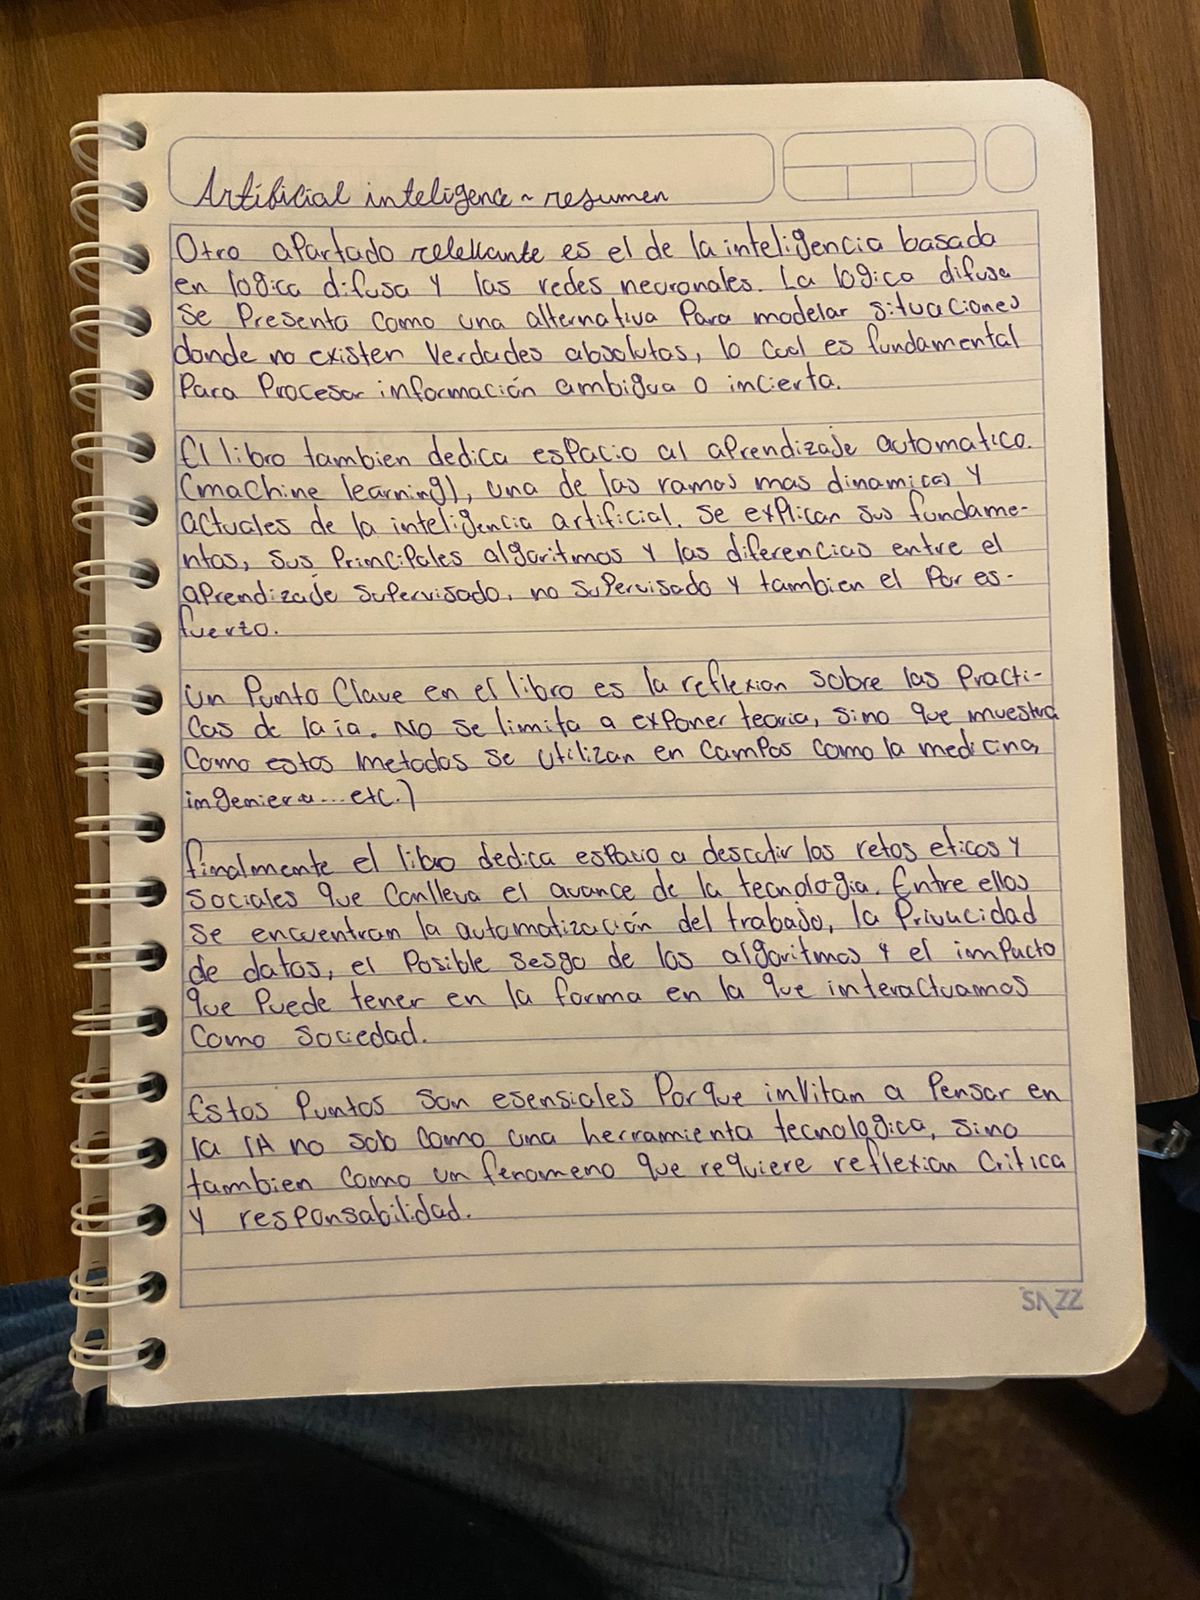 Artificial inteligence ~ resumen
Otro apartado relevante es el de la inteligencia basada
en logica difusa y las redes neuronales. La logica difusa
se presenta como una alternativa para modelar situaciones
donde no existen verdades absolutas, lo cual es fundamental
para procesar información ambigua o incierta.
El libro tambien dedica espacio al aprendizaje automatico.
(machine learning), una de las ramas mas dinamicas y
actuales de la inteligencia artificial. se explican sus fundame-
ntos, sus principales algoritmos y las diferencias entre el
aprendizaje supervisado, no supervisado y tambien el por es-
fuerzo.
un punto clave en el libro es la reflexion sobre las practi-
cas de la ia. No se limita a exponer teoria, sino que muestra
como estos metodos se utilizan en campos como la medicina,
ingeniera... etc.)
finalmente el libro dedica espacio a descutir los retos eticos y
sociales que conlleva el avance de la tecnologia. Entre ellos
se encuentran la automatización del trabajo, la privacidad
de datos, el posible sesgo de los algoritmos y el impacto
que puede tener en la forma en la que interactuamos
como sociedad.
Estos puntos son esensiales porque invitan a pensar en
la IA no solo como una herramienta tecnologica, sino
tambien como un fenomeno que requiere reflexion critica
y responsabilidad.
SAZZ